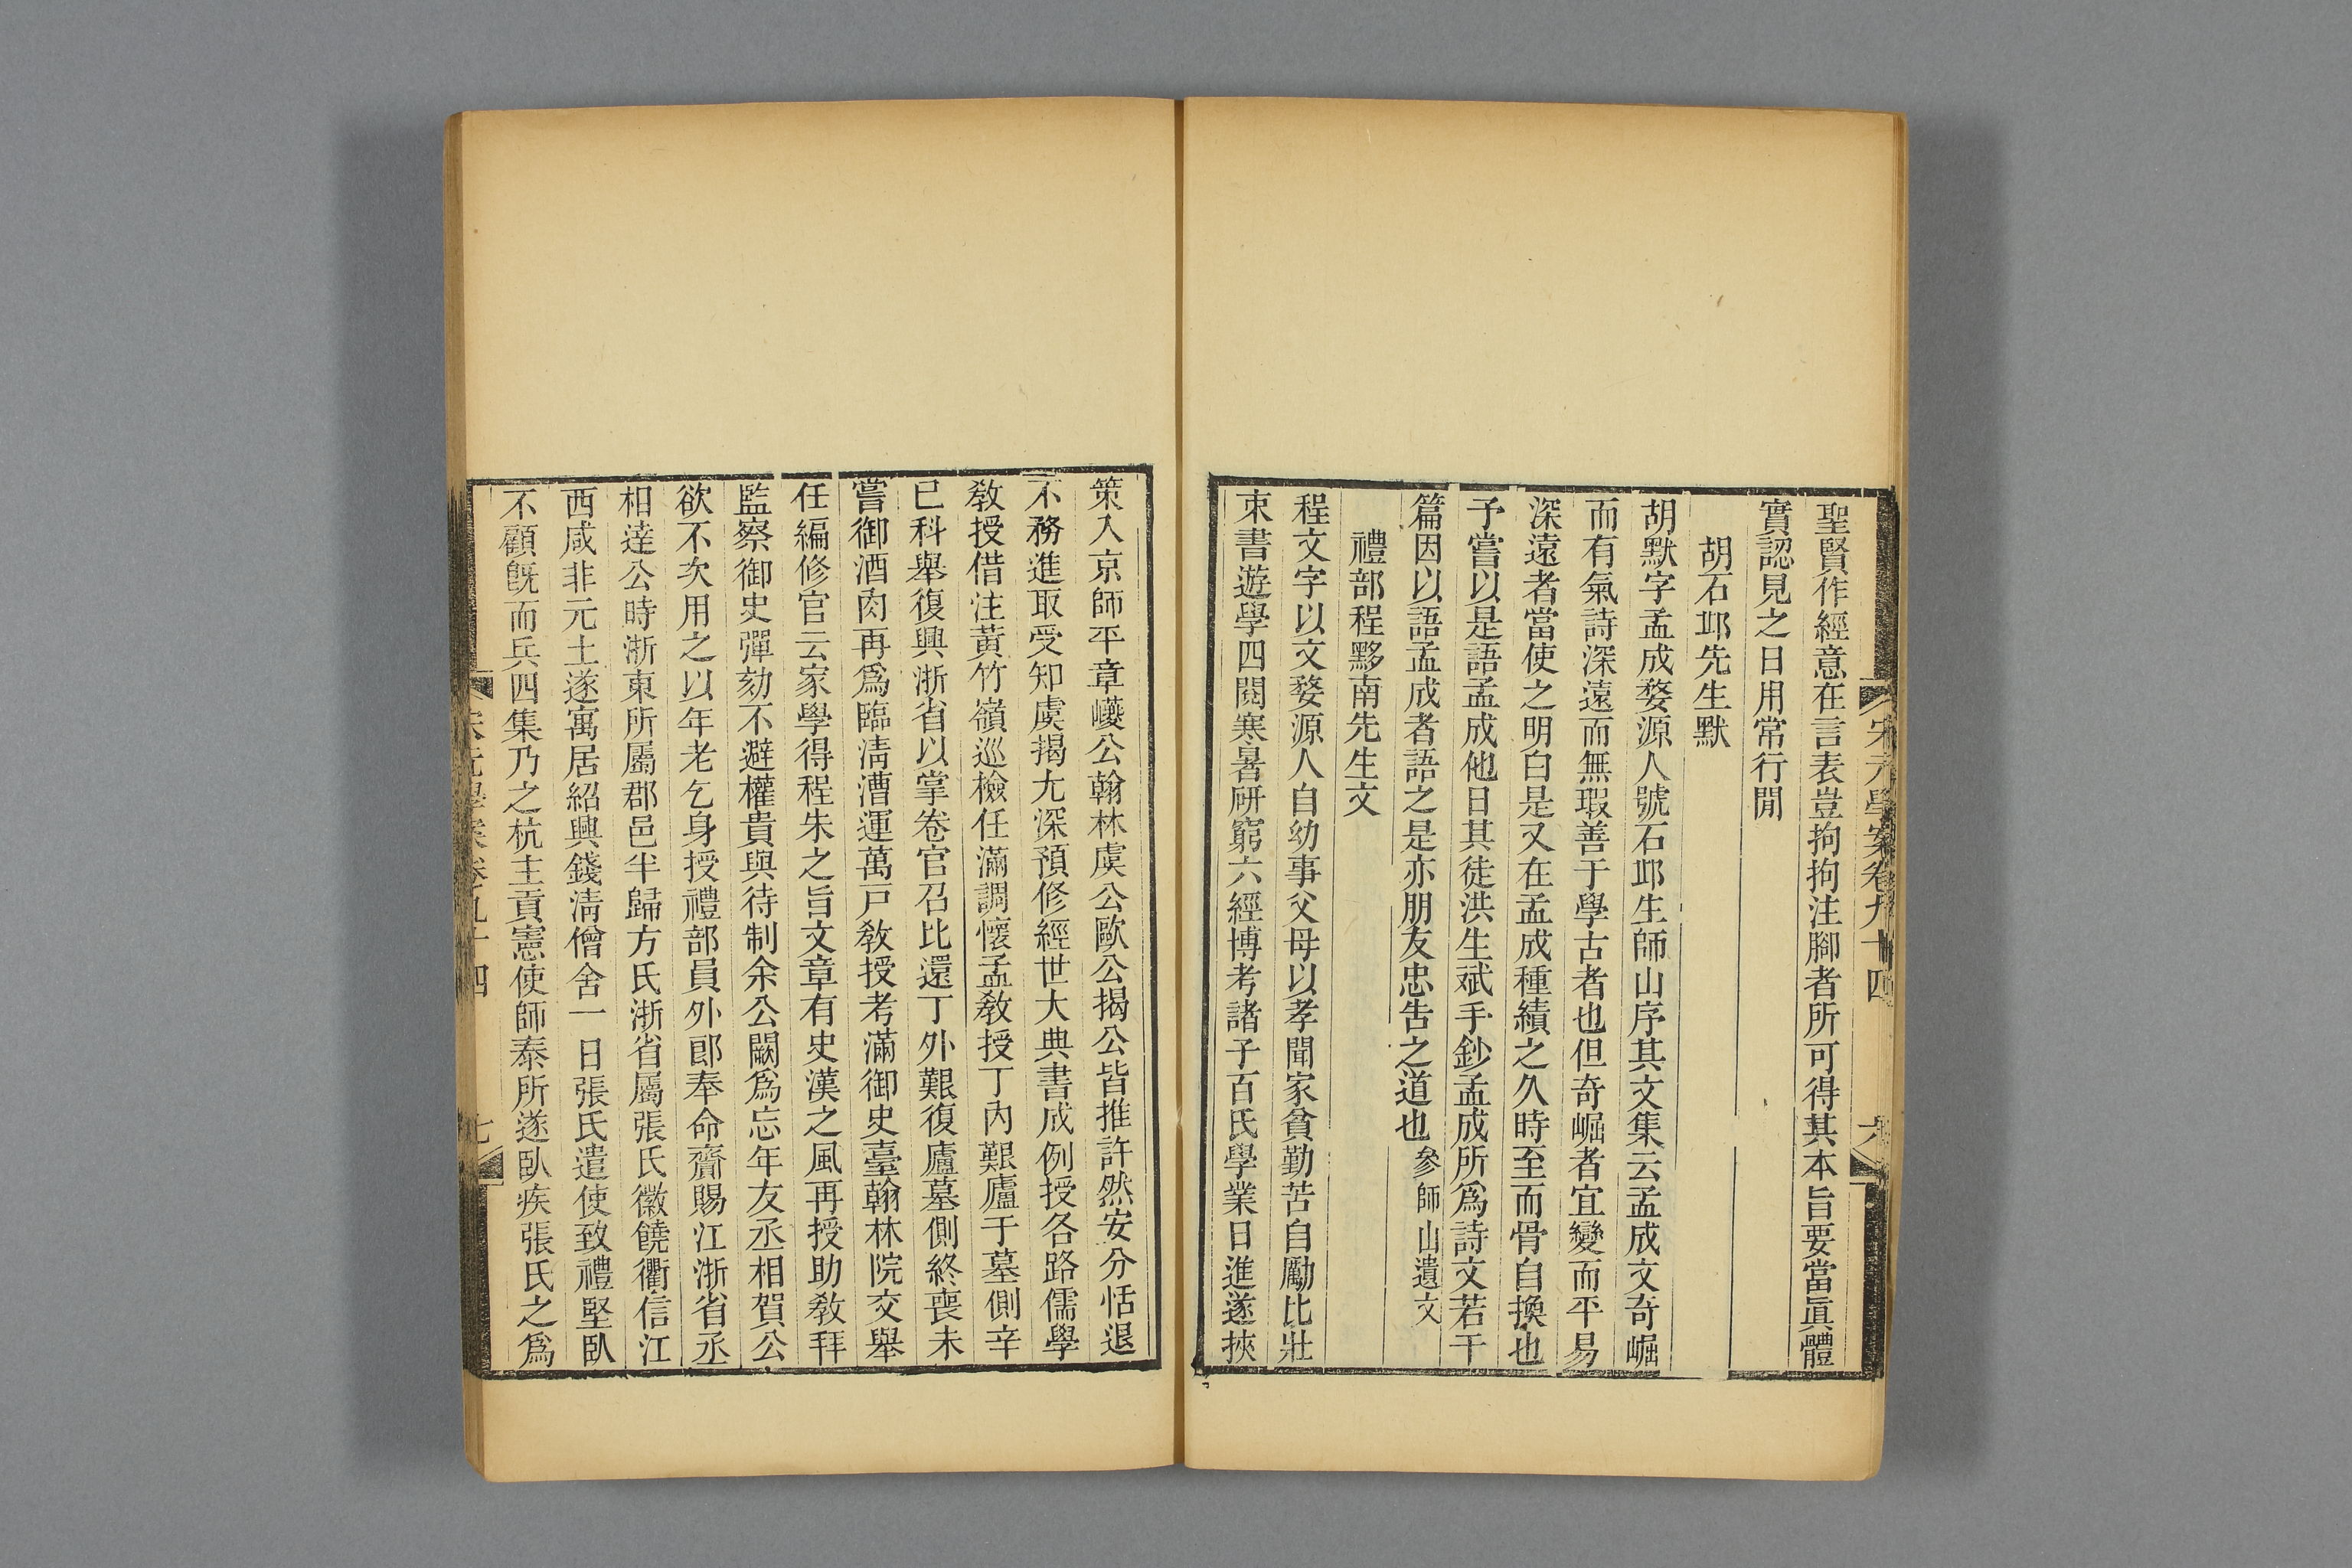 宋元學案卷九十四
六
聖賢作經意在言表豈拘拘注腳者所可得其本旨要當眞體
實認見之日用常行閒
胡石邱先生默
胡默字孟成婺源人號石邱生師山序其文集云孟成文奇崛
而有氣詩深遠而無瑕善于學古者也但奇崛者宜變而平易
深遠者當使之明白是又在孟成種績之久時至而骨自換也
予嘗以是語孟成他日其徒洪生斌手鈔孟成所爲詩文若干
篇因以語孟成者語之是亦朋友忠吿之道也參師山遺文
禮部程黟南先生文
程文字以文婺源人自幼事父母以孝聞家貧勤苦自勵比壯
朿書遊學四閱寒暑硏窮六經博考諸子百氏學業日進遂挾
策入京師平章巙公翰林虞公歐公揭公皆推許然安分恬退
不務進取受知虞揭尢深預修經世大典書成例授各路儒學
敎授借注黃竹嶺巡檢任滿調懷孟敎授丁內艱廬于墓側辛
巳科舉復興浙省以掌卷官召比還丁外艱復廬墓側終喪未
嘗御酒肉再爲臨淸漕運萬戸敎授考滿御史臺翰林院交舉
任編修官云家學得程朱之旨文章有史漢之風再授助敎拜
監察御史彈劾不避權貴與待制余公闕爲忘年友丞相賀公
欲不次用之以年老乞身授禮部員外郎奉命齎賜江浙省丞
相達公時浙東所屬郡邑半歸方氏浙省屬張氏徽饒衢信江
西咸非元土遂寓居紹興錢淸僧舍一日張氏遣使致禮堅臥
不顧旣而兵四集乃之杭主貢憲使師泰所遂臥疾張氏之爲
宋元學案卷九十四
七